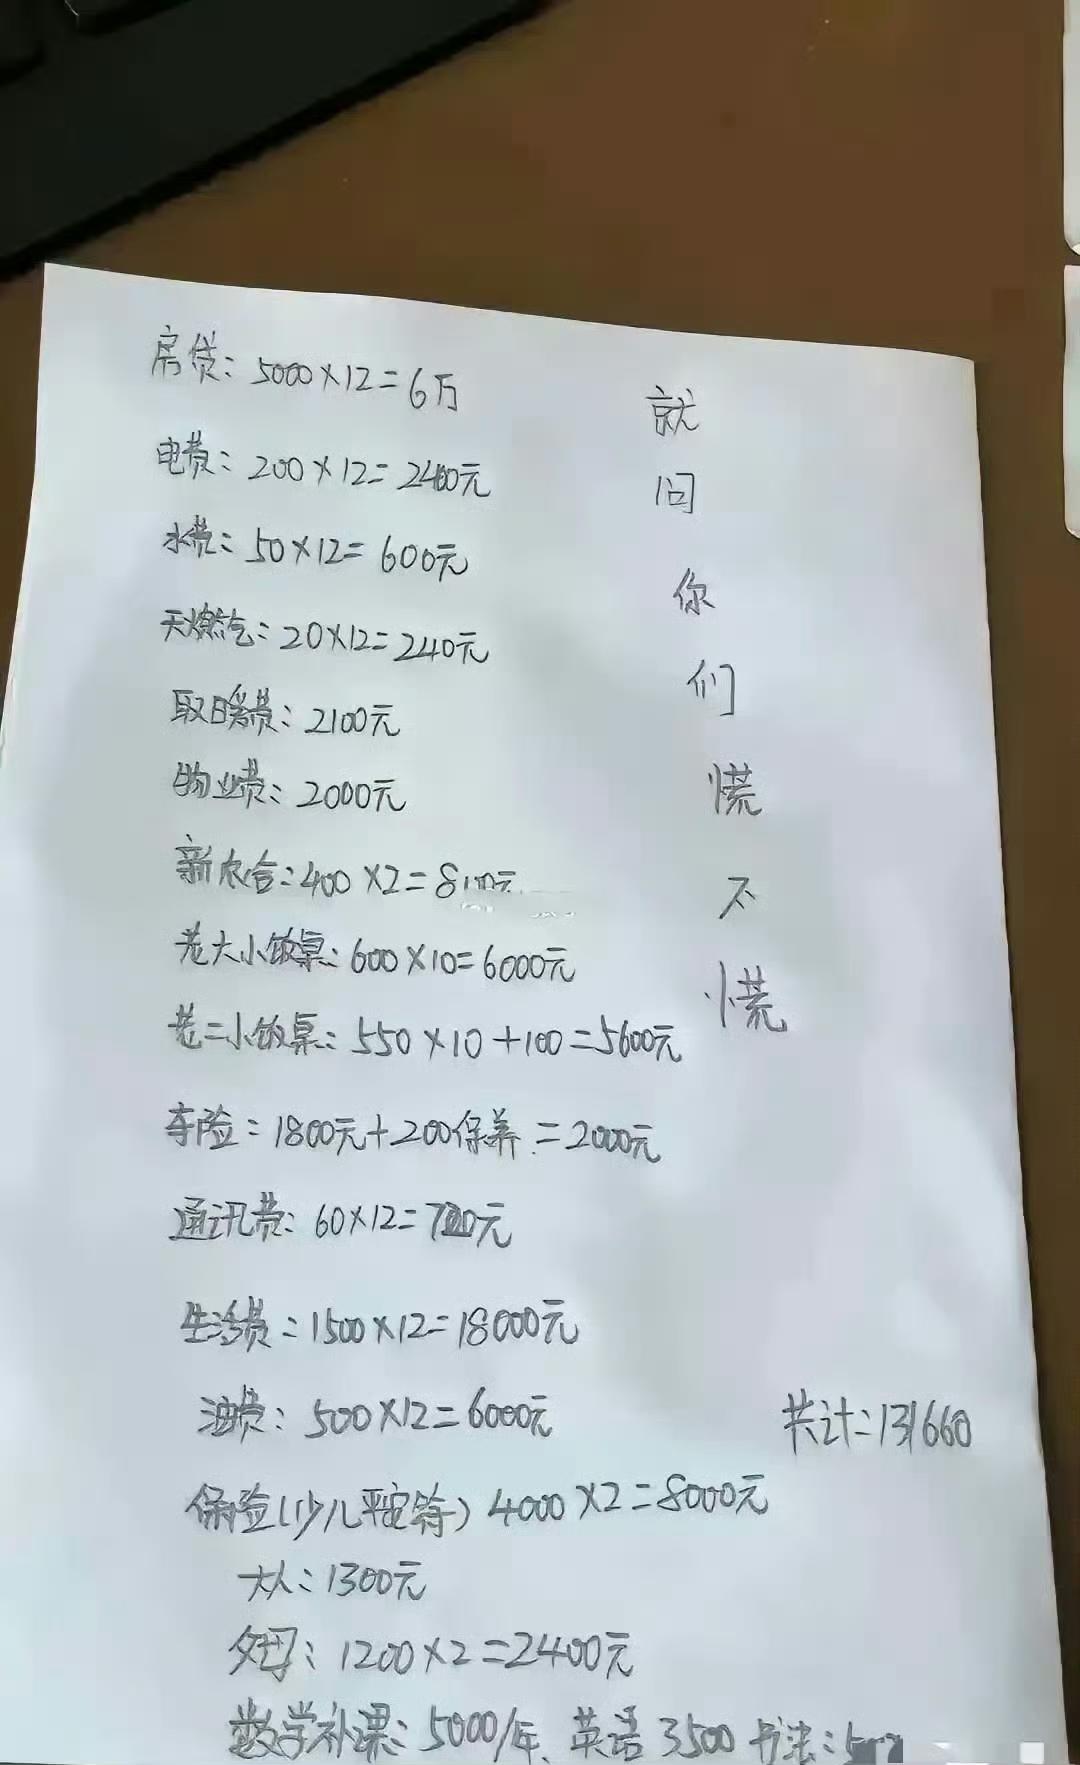 房贷：5000×12=6万
电费：200×12=2400元
水费：50×12=600元
天燃气：20×12=240元
取暖费：2100元
物业费：2000元
新农合：400×2=800元
老大小饭桌：600×10=6000元
老二小饭桌：550×10+100=5600元
车险：1800元+200保养=2000元
通讯费：60×12=720元
生活费：1500×12=18000元
油费：500×12=6000元
保险(少儿平安等)4000×2=8000元
大人：1300元
父母：1200×2=2400元
数学补课：5000/年、英语3500 书法：
就问你们慌不慌
共计：131660